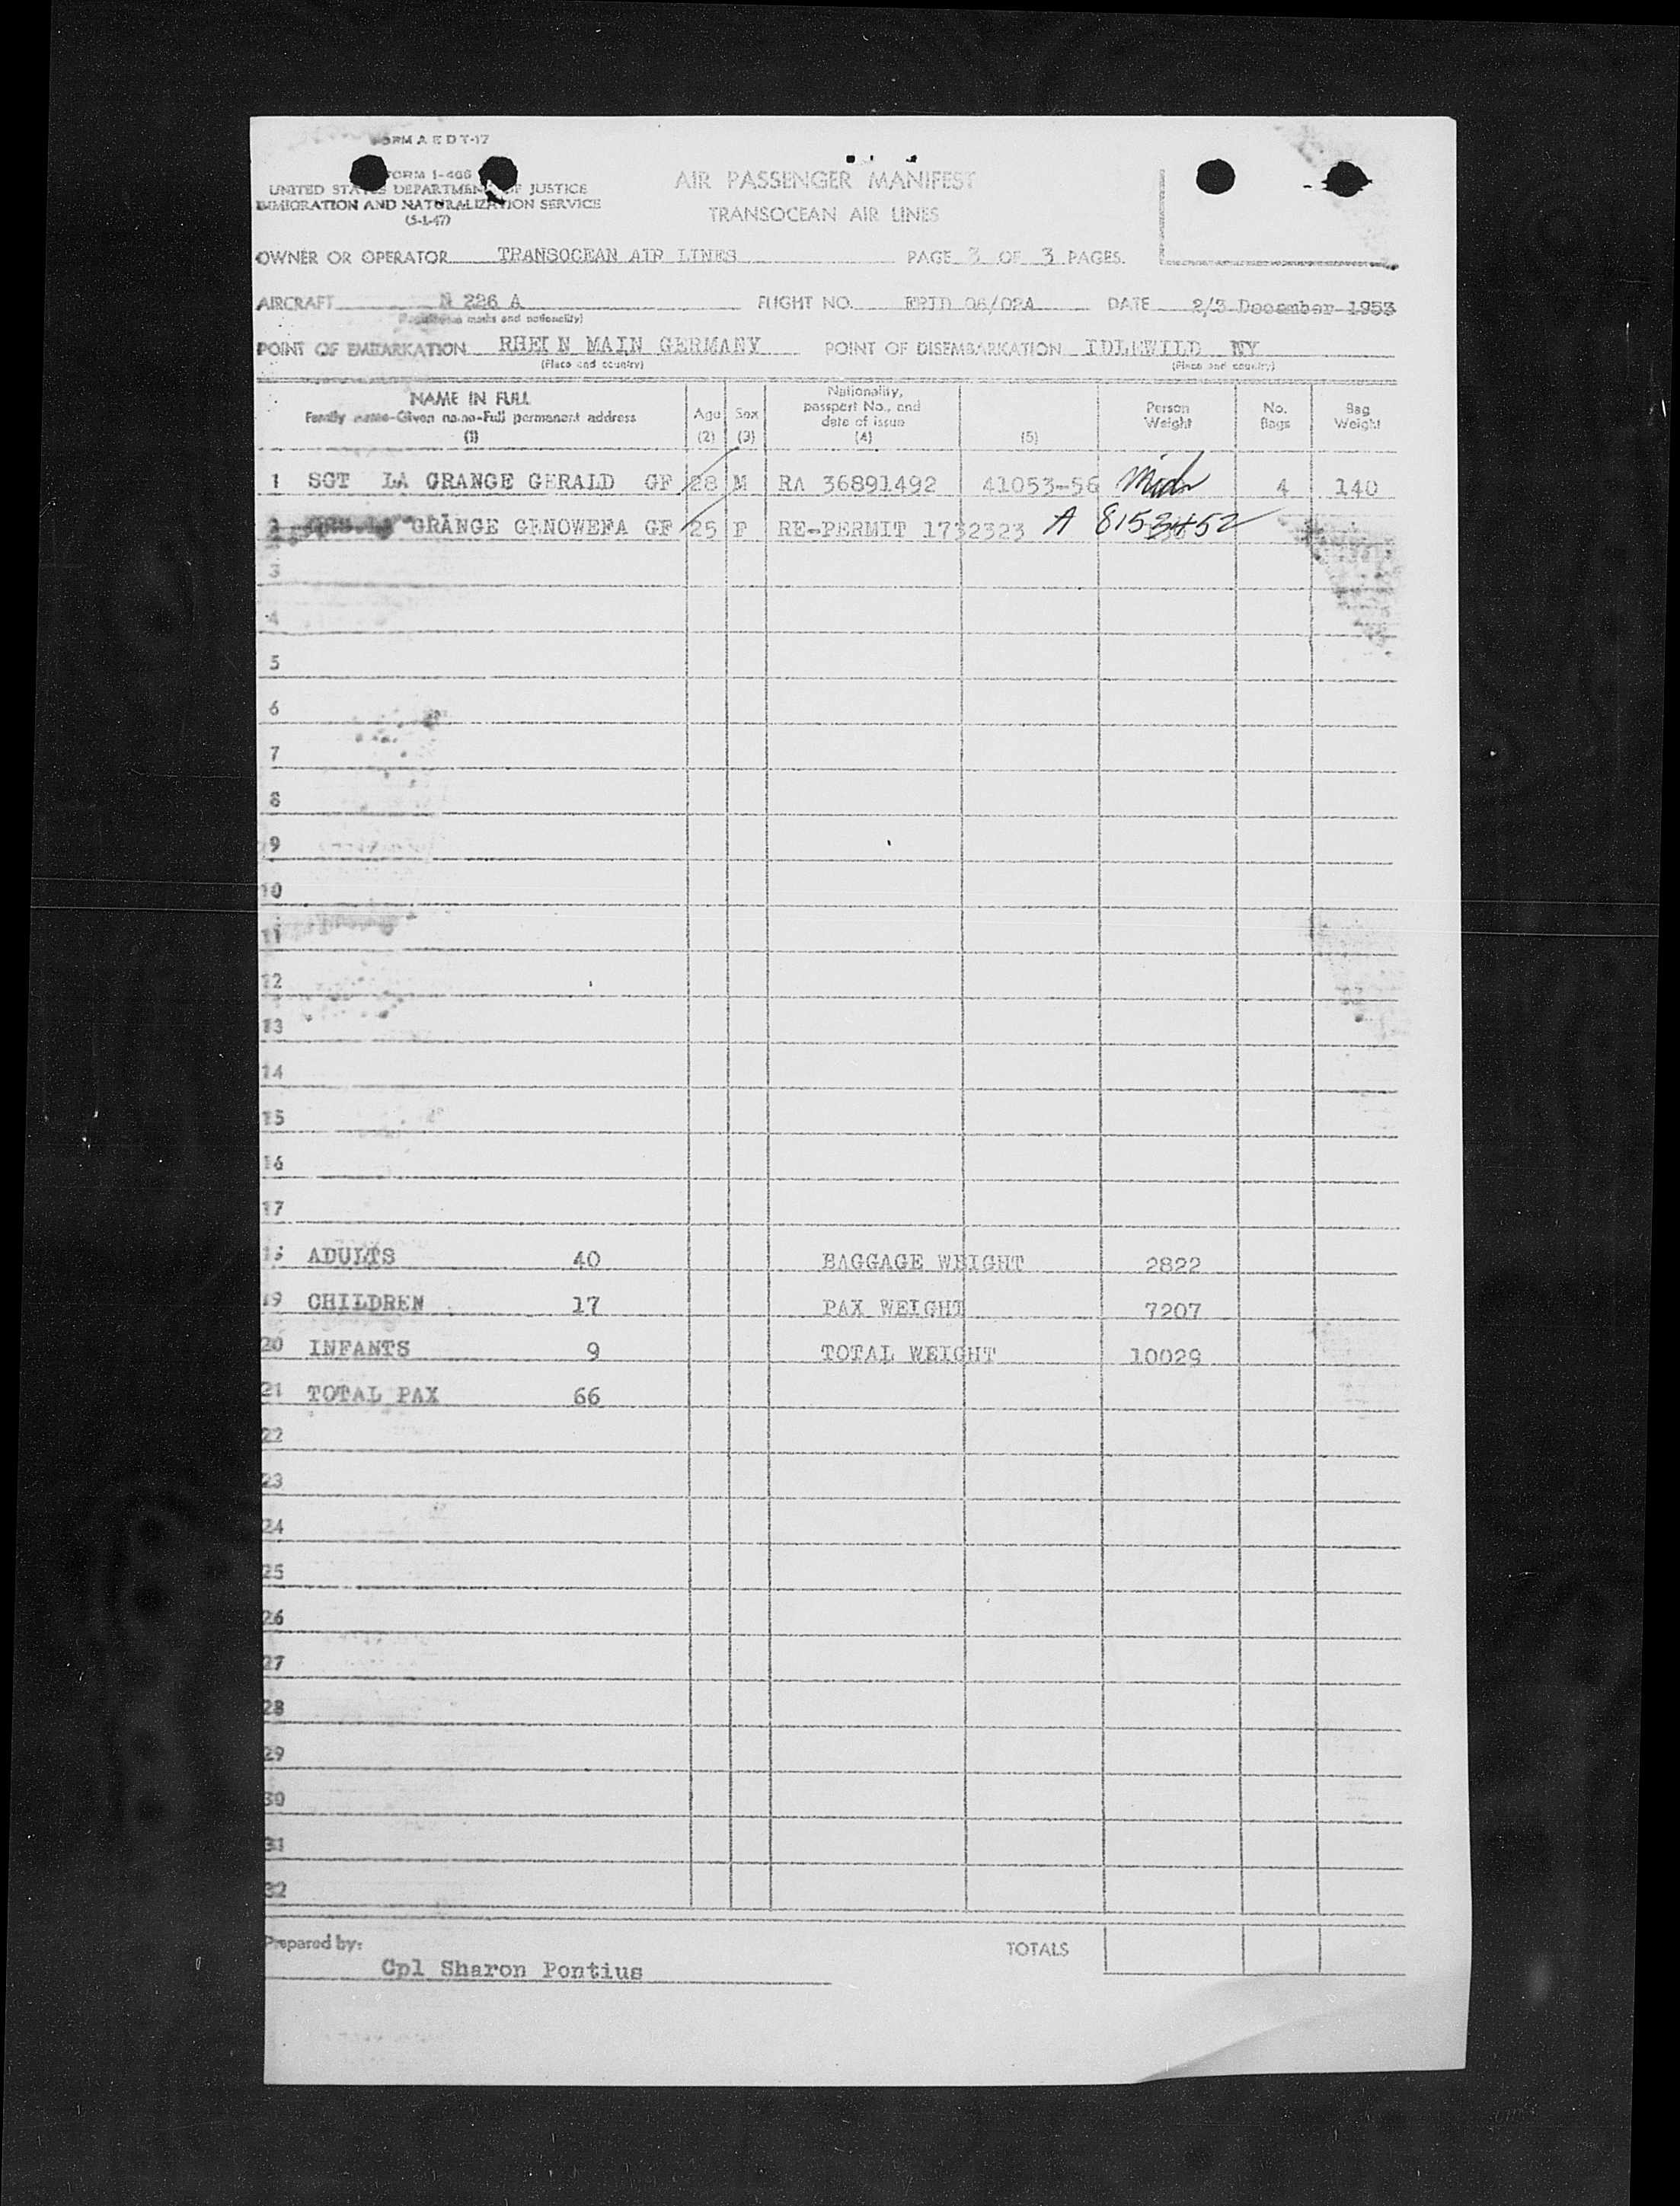 FORM A E D T-17
FORM I-466
UNITED STATES DEPARTMENT OF JUSTICE
IMMIGRATION AND NATURALIZATION SERVICE
(5-1-47)
AIR PASSENGER MANIFEST
TRANSOCEAN AIR LINES
OWNER OR OPERATOR TRANSOCEAN AIR LINES PAGE 3 OF 3 PAGES.
AIRCRAFT N 226 A FLIGHT NO. 06/02A DATE 2/3 December 1953
marks and nationality)
POINT OF EMBARKATION RHEIN MAIN GERMANY POINT OF DISEMBARKATION IDLEWILD NY
(Place and country) (Place and country)
NAME IN FULL
Family name-Given name-Full permanent address
(1)
Age
(2)
Sex
(3)
Nationality,
passport No., and
date of issue
(4)
(5)
Person
Weight
No.
Bags
Bag
Weight
1 SGT LA GRANGE GERALD GF 28 M RA 36891492 41053-56 Mich 4 140
2 LA GRANGE GENOWEFA GF 25 F RE-PERMIT 1732323 A 8153452
3
4
5
6
7
8
9
10
11
12
13
14
15
16
17
18 ADULTS 40 BAGGAGE WEIGHT 2822
19 CHILDREN 17 PAX WEIGHT 7207
20 INFANTS 9 TOTAL WEIGHT 10029
21 TOTAL PAX 66
22
23
24
25
26
27
28
29
30
31
32
Prepared by: TOTALS
Cpl Sharon Pontius